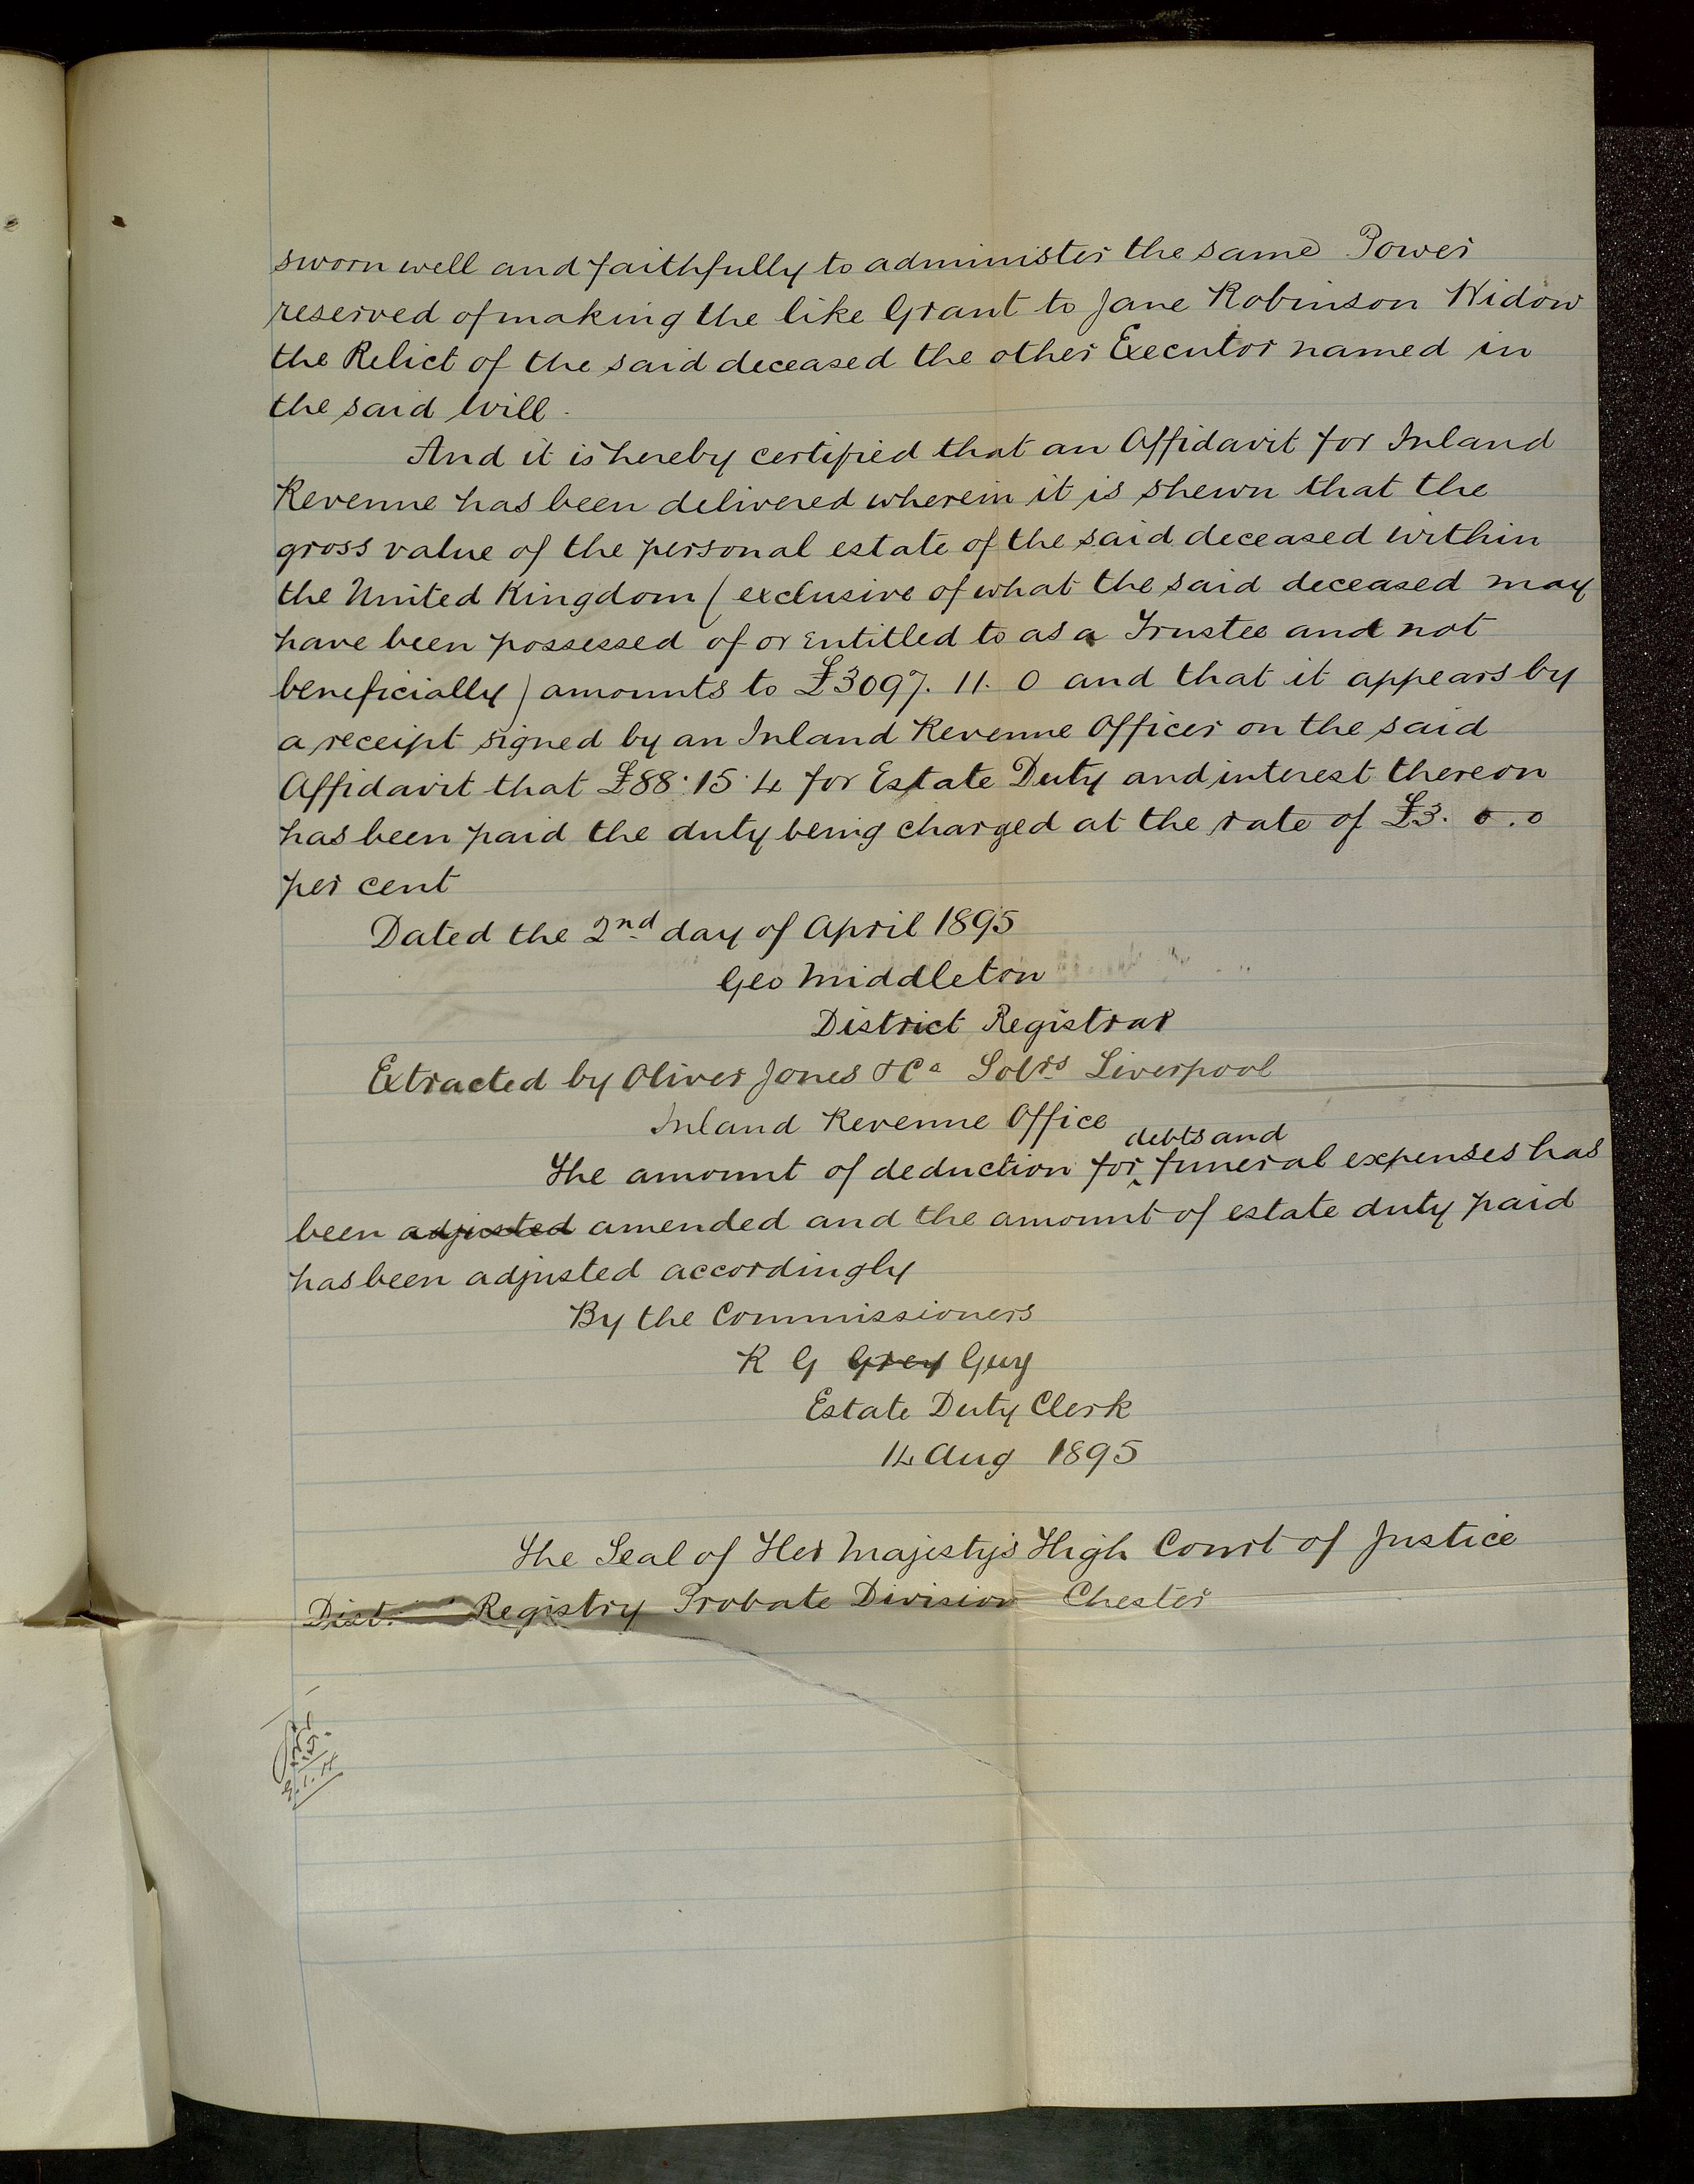 sworn well and faithfully to administer the same Power
reserved of making the like Grant to Jane Robinson Widow
the Relict of the said deceased the other Executor named in
the said Will.
And it is hereby certified that an Affidavit for Inland
Revenue has been delivered wherein it is shewn that the
gross value of the personal estate of the said deceased within
the United Kingdom (exclusive of what the said deceased may
have been possessed of or entitled to as a Trustee and not
beneficially) amounts to £3097. 11. 0 and that it appears by
a receipt signed by an Inland Revenue Officer on the said
Affidavit that £88.15.4 for Estate Duty and interest thereon
has been paid the duty being charged at the rate of £3. 0. 0
per cent
Dated the 2nd day of April 1895
Geo Middleton
District Registrar
Extracted by Oliver Jones & Co Solrs Liverpool
Inland Revenue Office
debts and
The amount of deduction for ^ funeral expenses has
been adjusted amended and the amount of estate duty paid
has been adjusted accordingly
By the Commissioners
R G Grey Guy
Estate Duty Clerk
14 Aug 1895
The Seal of Her Majesty's High Court of Justice
Dist. Registry Probate Division Chester